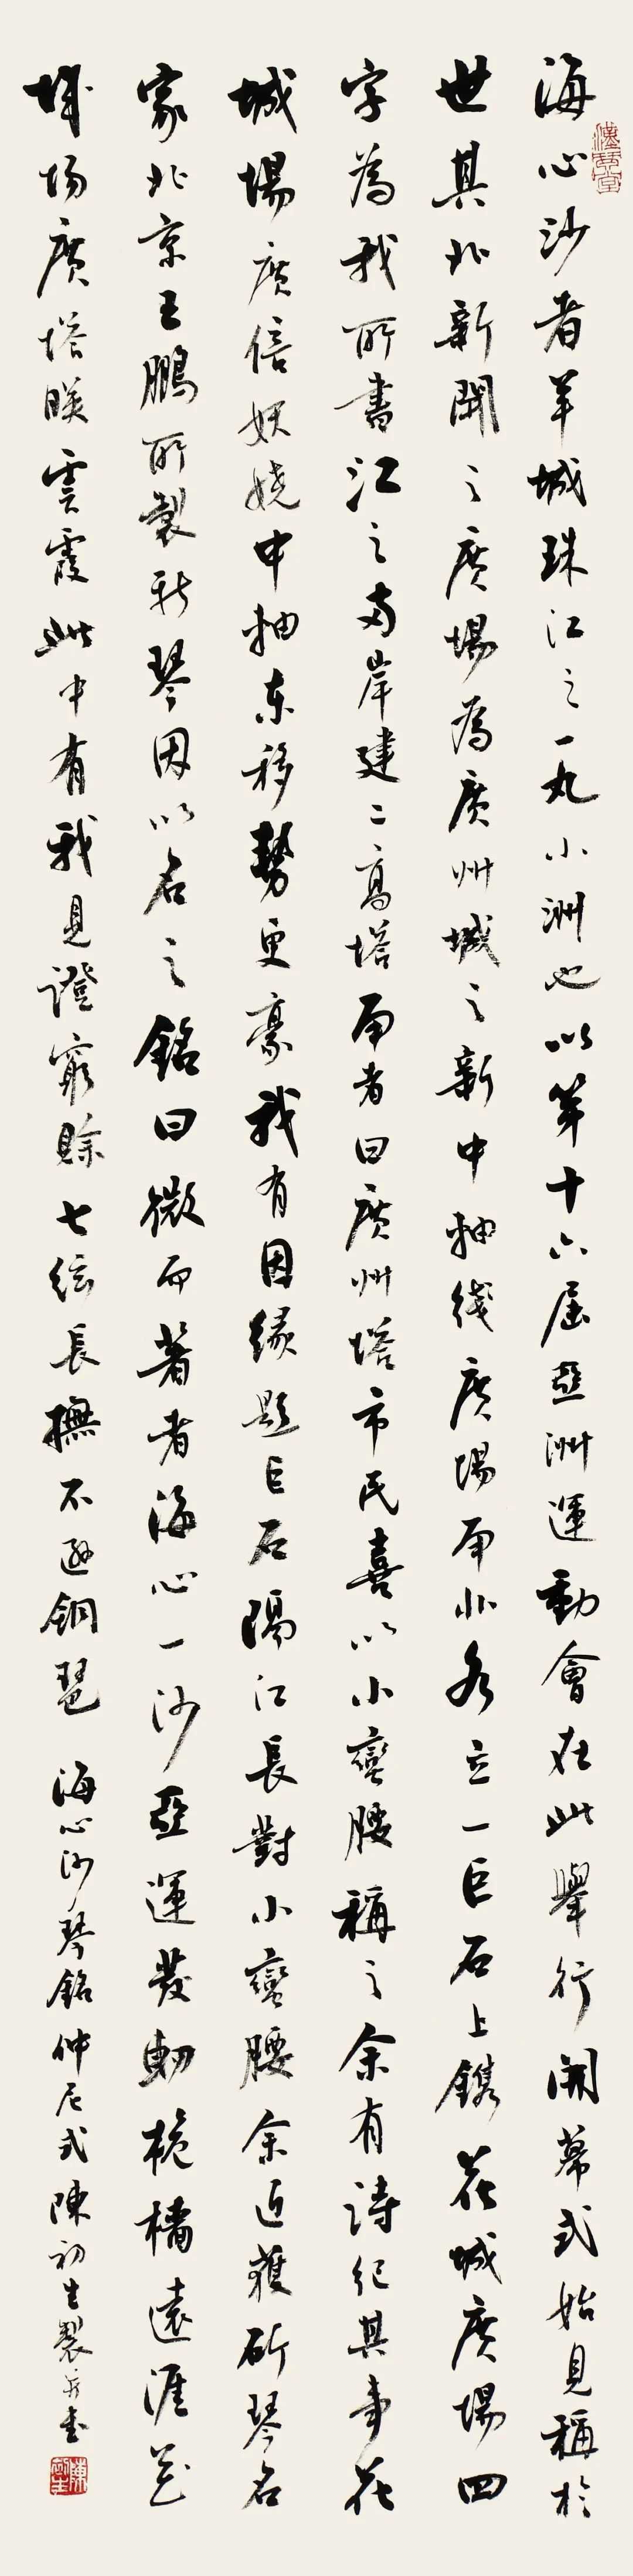 海心沙者羊城珠江之一丸小洲也以第十六屆亞洲運動會在此舉行開幕式始見稱於
世其北新開之廣場為廣州城之新中軸綫廣場南北各立一巨石上鐫花城廣場四
字為我所書江之南岸建一高塔南者曰廣州塔市民喜以小蠻腰稱之余有詩紀其事花
城場廣倍妖嬈中軸東移勢更豪我有因緣題巨石隔江長對小蠻腰余近獲斫琴名
家北京王鵬所製新琴因以名之銘曰微而著者海心一沙亞運發軔桅檣遠涯花
城場廣塔映雲霞此中有我見證窮賒七絃長撫不遜銅琶
海心沙琴銘仲尼式陳初生製并書